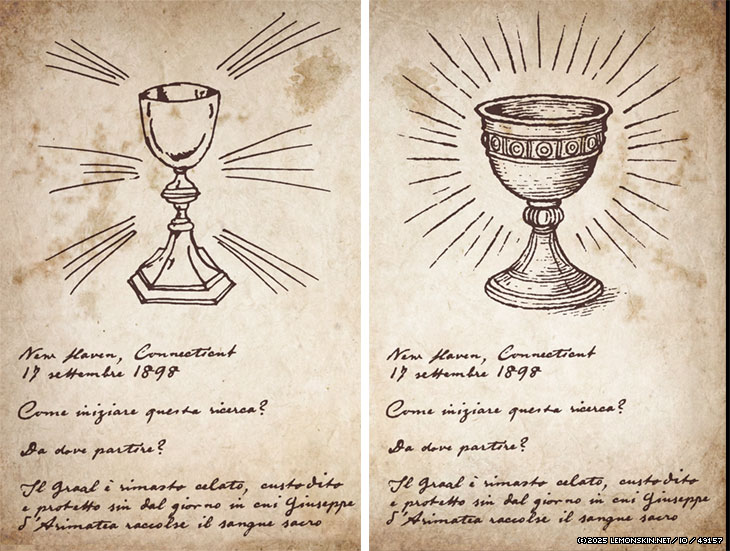 New Haven, Connecticut
17 settembre 1898
Come iniziare questa ricerca?
Da dove partire?
Il Graal è rimasto celato, custodito
e protetto sin dal giorno in cui Giuseppe
d'Arimatea raccolse il sangue sacro
New Haven, Connecticut
17 settembre 1898
Come iniziare questa ricerca?
Da dove partire?
Il Graal è rimasto celato, custodito
e protetto sin dal giorno in cui Giuseppe
d'Arimatea raccolse il sangue sacro
(C) 2025 LEMONSKIN.NET / IO / 49157